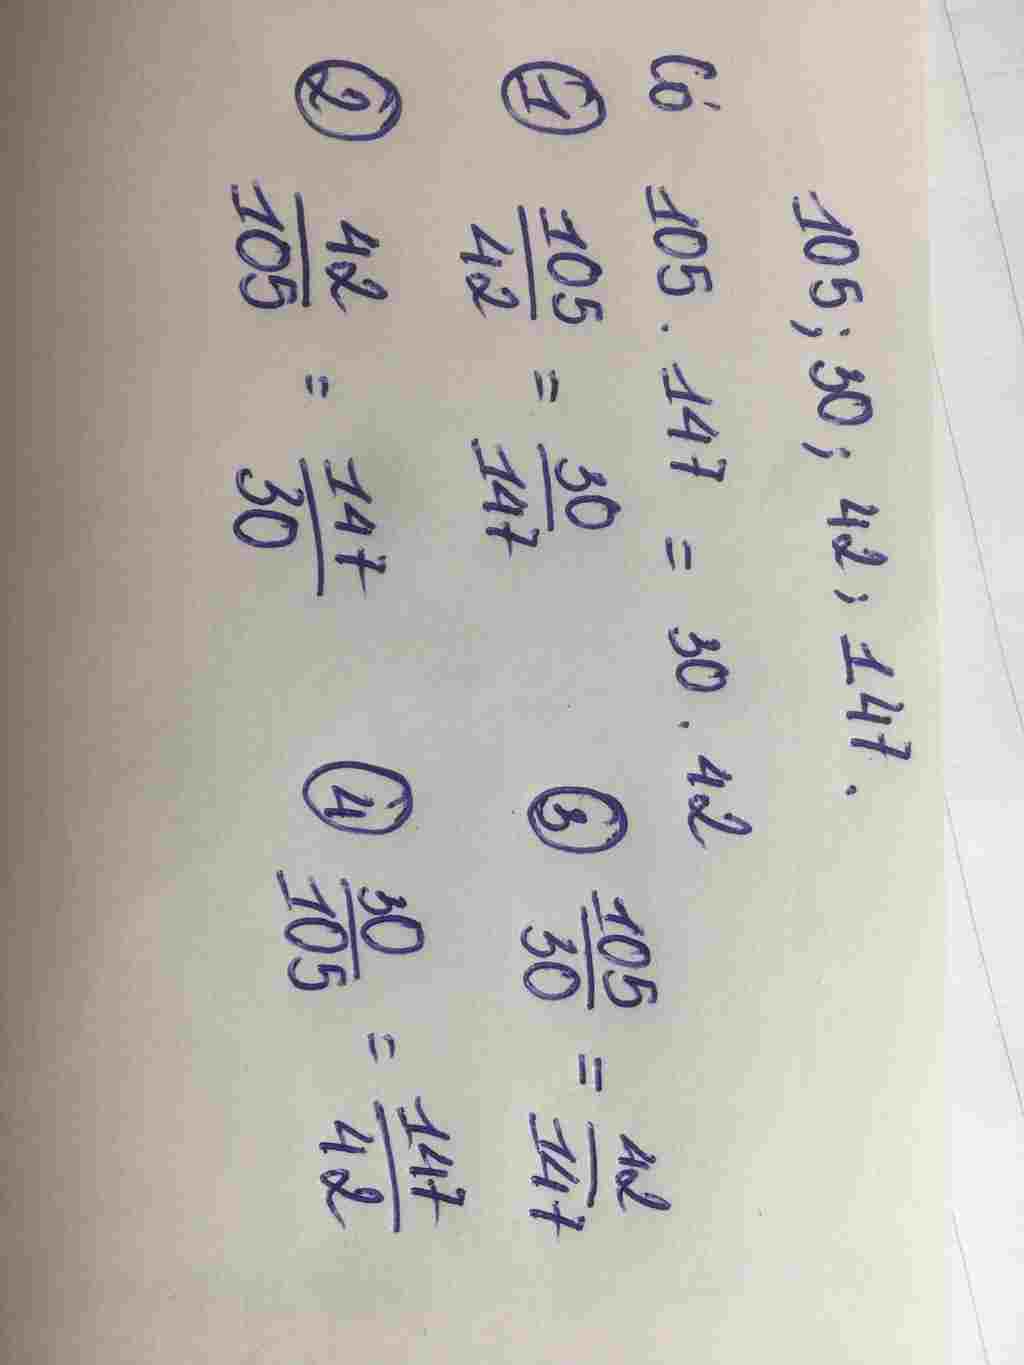 105; 30; 42; 147.
Có 105 . 147 = 30 . 42
① 105/42 = 30/147 ③ 105/30 = 42/147
② 42/105 = 147/30 ④ 30/105 = 147/42